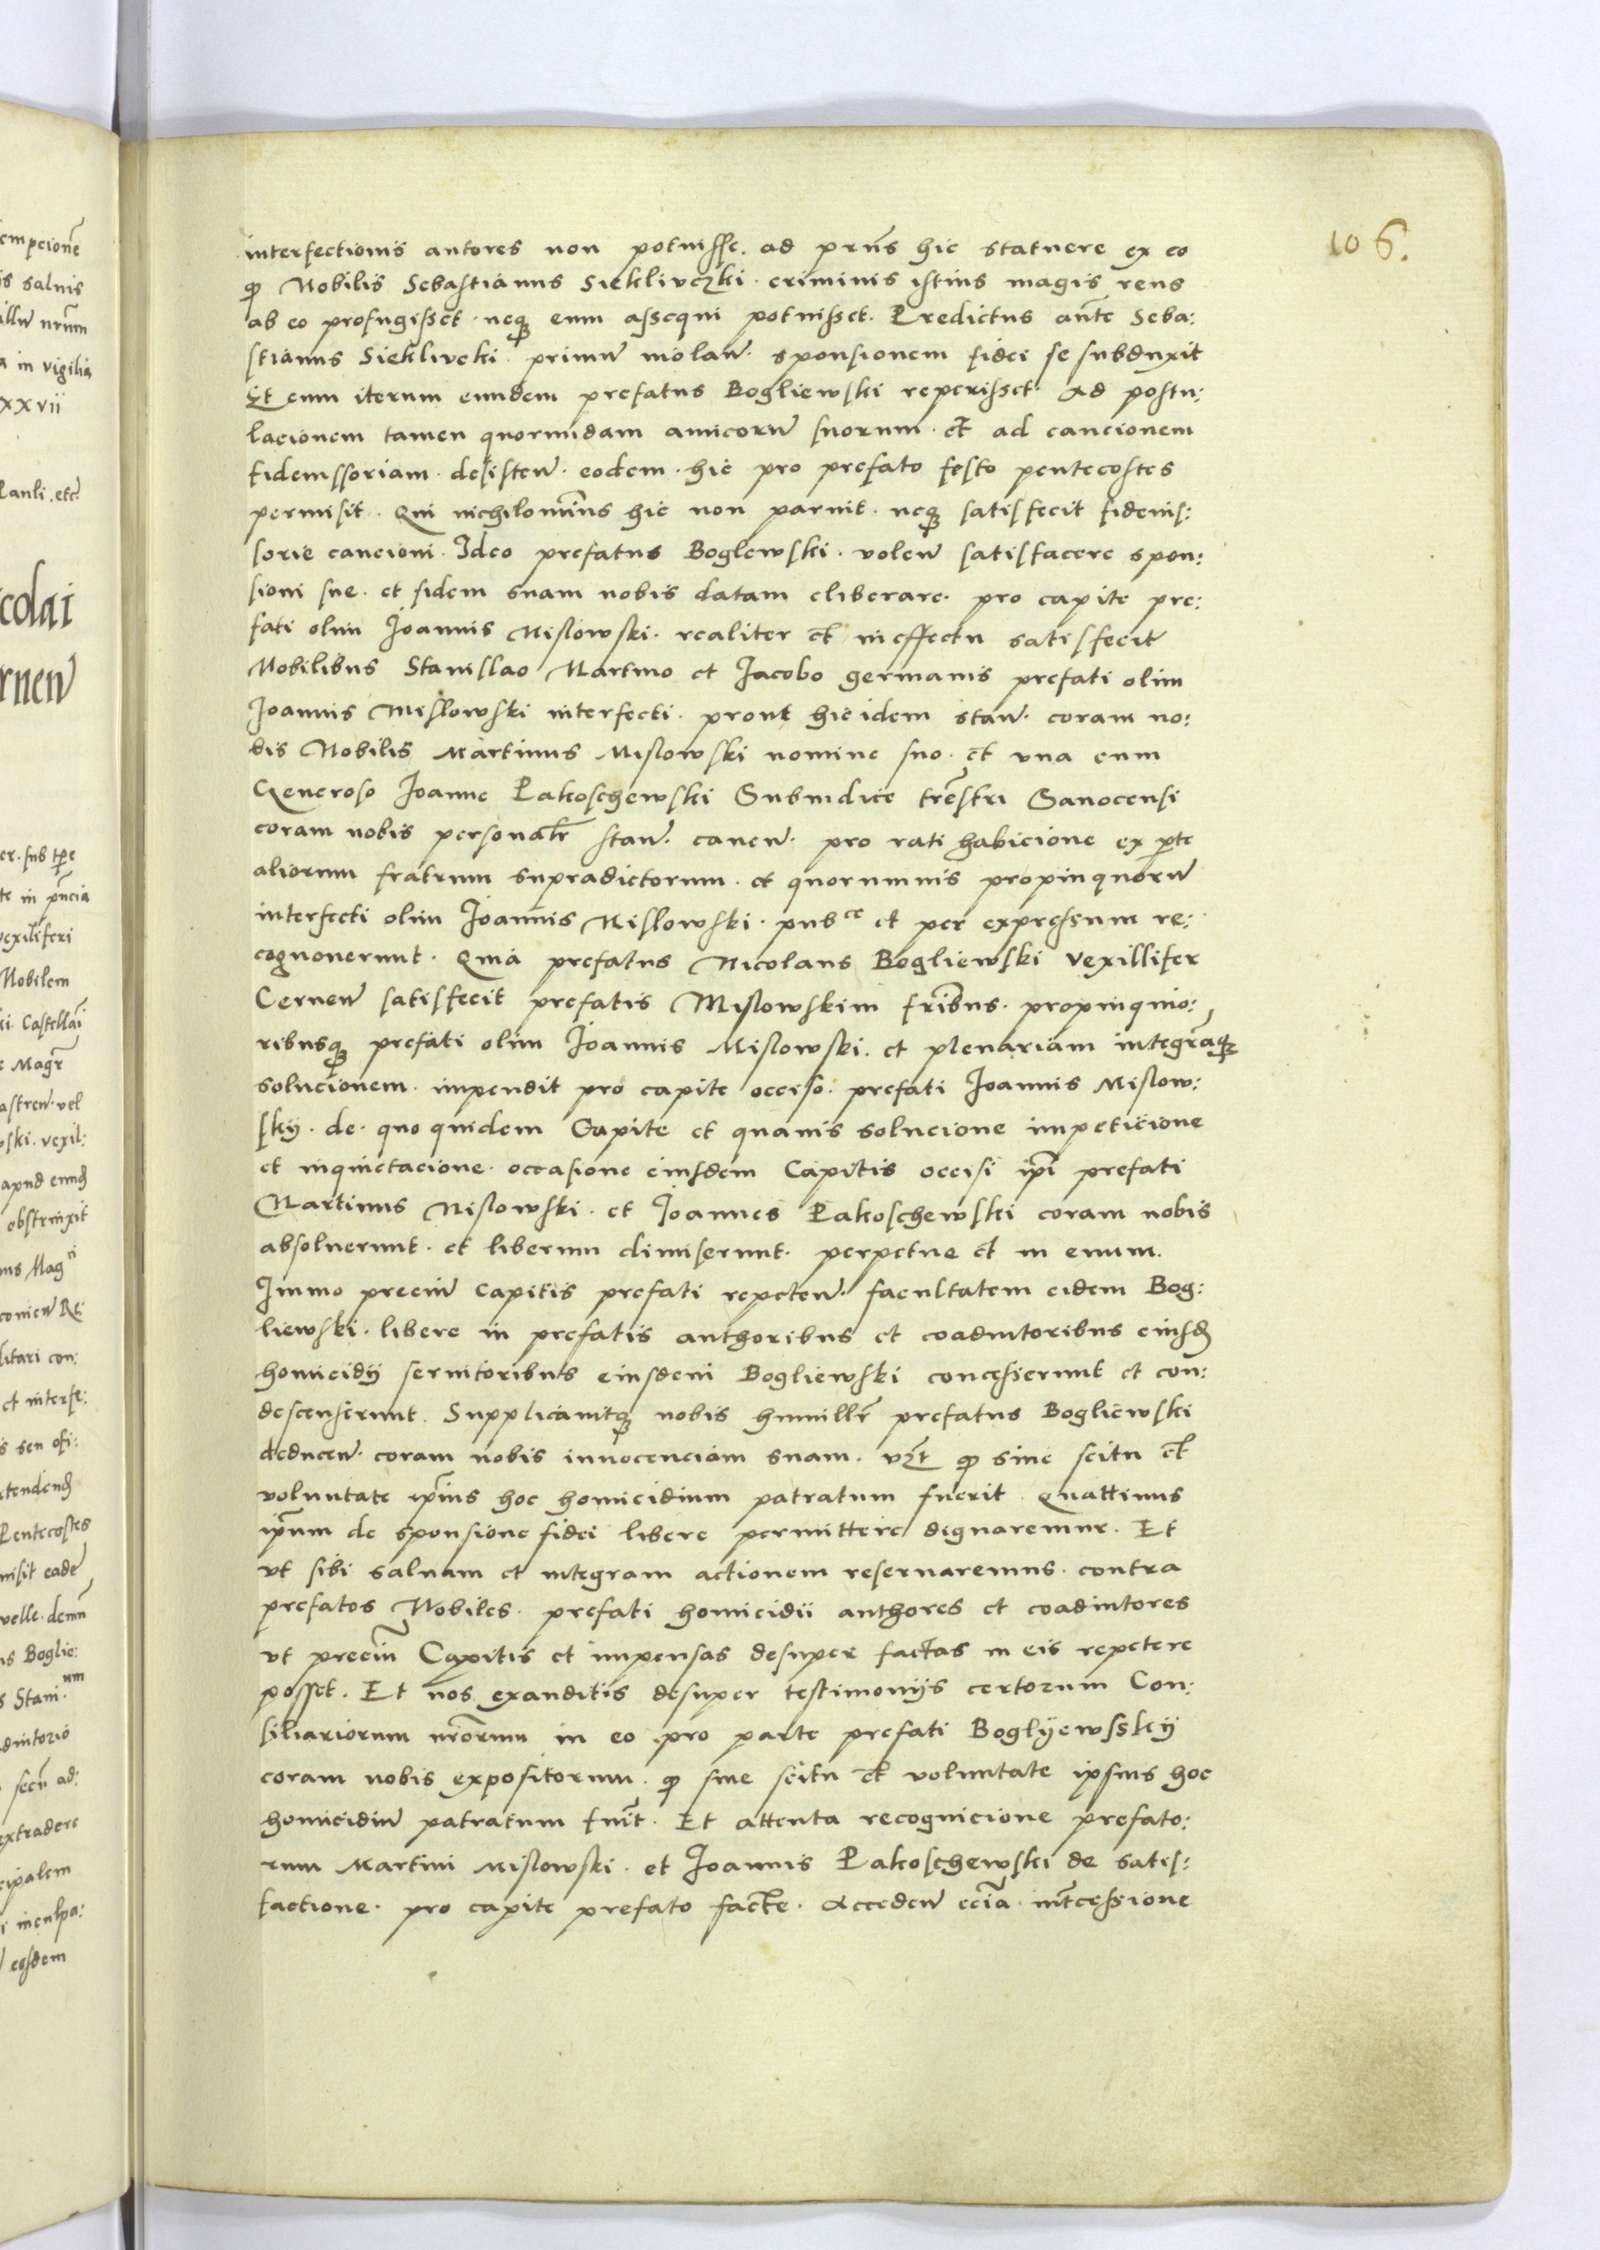 106.
interfectionis autores non potuisse. ad prñs hic statuere ex eo
qꝫ Nobilis Sebastianus Siekliuczki. criminis istius magis reus
ab eo profugisset. neqꝫ eum assequi potuisset. Predictus autē Seba:
stianus Sieklivcki. primū violaū. sponsionem fidei se subduxit
Et cum iterum eundem prefatus Bogliewski reperisset. Ad postu:
lacionem tamen quorundam amicorū suorum. et ad caucionem
fideiussoriam. desisteñ. eodem. hic pro prefato festo pentecostes
permisit. Qui nichilominus hic non paruit. neqꝫ satisfecit fideius:
sorie caucioni. Ideo prefatus Boglewski. voleñ satisfacere spon:
sioni sue. et fidem suam nobis datam eliberare. pro capite pre:
fati olim Joannis Mislowski. realiter et in effectu satisfecit
Nobilibus Stanislao Martino et Jacobo germanis prefati olim
Joannis Mislowski interfecti. prout hic idem stañ. coram no:
bis Nobilis Martinus Mislowski nomine suo. et vna cum
Generoso Joanne Pakoschewski Subiudice trēstri Sanocensi
coram nobis personalr̄ stañ. caueñ. pro rati habicione ex p̄te
aliorum fratrum supradictorum. et quorumuis propinquorū
interfecti olim Joannis Mislowski. pubce et per expressum re:
cognouerunt. Quia prefatus Nicolaus Bogliewski vexillifer
Cerneñ satisfecit prefatis Mislowskim fribus. propinquio:
ribusqꝫ prefati olim Joannis Mislowski. et plenariam integrāqꝫ
solucionem. impendit pro capite occiso. prefati Joannis Mislow:
sky. de. quo quidem Capite et quauis solucione impeticione
et inquietacione. occasione eiusdem Capitis occisi ip̄i prefati
Martinus Mislowski. et Joannes Pakoschewski coram nobis
absoluerunt. et liberum dimiserunt. perpetue et in euum.
Immo preciū Capitis prefati repeteñ. facultatem eidem Bog:
liewski. libere in prefatis authoribus et coadiutoribus eiusd
homicidy seruitoribus eiusdem Bogliewski concesserunt et con:
descenserunt. Supplicauitqꝫ nobis humillr̄ prefatus Bogliewski
deduceñ. coram nobis innocenciam suam. vzt qꝫ sine scitu et
voluntate ip̄ius hoc homicidium patratum fuerit. Quattinus
ip̄um de sponsione fidei libere permittere dignaremur. Et
vt sibi saluam et integram actionem reseruaremus. contra
prefatos Nobiles. prefati homicidii authores et coadiutores
vt preciū Capitis et impensas desuper factas in eis repetere
posset. Et nos exauditis desuper testimonys certorum Con:
siliariorum nr̄orum in eo pro parte prefati Boglyewssky
coram nobis expositorum. qꝫ sine scitu et voluntate ipsius hoc
homicidiū patratum fuit. Et attenta recognicione prefato:
rum Martini Mislowski. et Joannis Pakoschewski de satis:
factione. pro capite prefato facte. Accedeñ eciā. intcessione